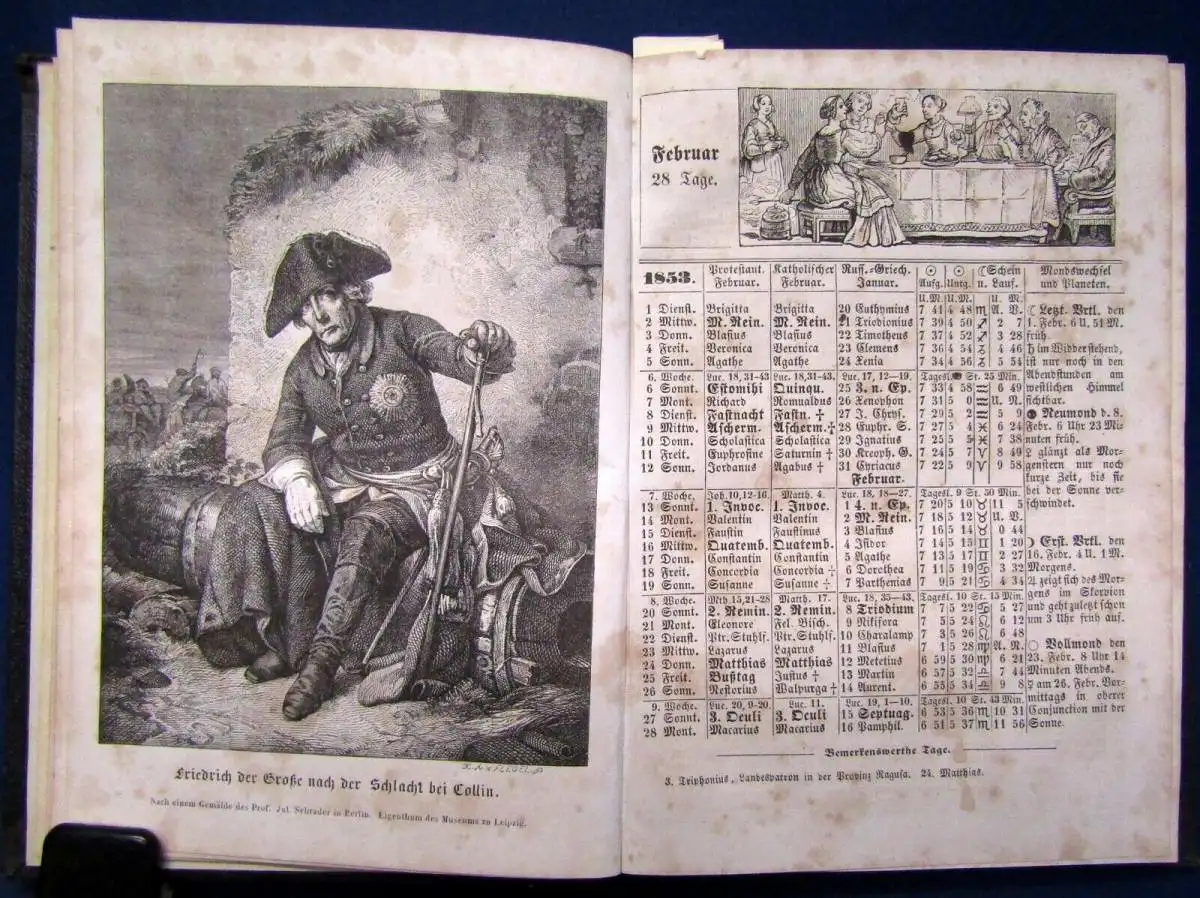 Friedrich der Große nach der Schlacht bei Collin.
Nach einem Gemälde des Prof. Jul. Schrader in Berlin. Eigenthum des Museums zu Leipzig.
Februar
28 Tage.
1853. Protestant. Februar. Katholischer Februar. Russ.-Griech. Januar. ☉ Aufg. ☉ Untg. ☾Schein u. Lauf. Mondswechsel und Planeten.
U.M. U.M. U. M.
1 Dienst. Brigitta Brigitta 20 Euthymius 7 41 4 48 ♏ A. V.
2 Mittw. M. Rein. M. Rein. 21 Triodionius 7 39 4 50 ♐ 2 7
3 Donn. Blasius Blasius 22 Timotheus 7 37 4 52 ♐ 3 28
4 Freit. Veronica Veronica 23 Clemens 7 36 4 54 ♑ 4 46
5 Sonn. Agathe Agatha 24 Xenia 7 34 4 56 ♑ 5 54
6. Woche Luc. 18, 31-43 Luc. 18, 31-43. Luc. 17, 12-19. Tagesl. St. 25 Min.
6 Sonnt. Estomihi Quinqu. 25 3. n. Ep. 7 33 4 58 ♒ 6 49
7 Mont. Richard Romualdus 26 Xenophon 7 31 5 0 ♒ U. N.
8 Dienst. Fastnacht Fastn. † 27 J. Chrys. 7 29 5 2 ♒ 5 9
9 Mittw. Ascherm. Ascherm. † 28 Euphr. S. 7 27 5 4 ♓ 6 24
10 Donn. Scholastica Scholastica 29 Ignatius 7 25 5 5 ♓ 7 38
11 Freit. Euphrosine Saturnin † 30 Kreoph. G. 7 24 5 7 ♈ 8 49
12 Sonn. Jordanus Agabus † 31 Cyriacus 7 22 5 9 ♈ 9 58
Februar.
7. Woche Joh. 10, 12-16. Matth. 4. Luc. 18, 18-27. Tagesl. 9 St. 50 Min.
13 Sonnt. 1. Invoc. 1. Invoc. 1 4. n. Ep. 7 20 5 10 ♉ 11 5
14 Mont. Valentin Valentin 2 M. Rein. 7 18 5 12 ♉ U. V.
15 Dienst. Faustin Faustinus 3 Blasius 7 16 5 14 ♉ 0 44
16 Mittw. Quatemb. Quatemb. 4 Isidor 7 14 5 15 ♊ 1 20
17 Donn. Constantin Constantin 5 Agathe 7 13 5 17 ♊ 2 27
18 Freit. Concordia Concordia † 6 Dorothea 7 11 5 19 ♋ 3 32
19 Sonn. Susanne Susanne † 7 Parthenias 7 9 5 21 ♋ 4 34
8. Woche Mth 15, 21-28 Matth. 17. Luc. 18, 35-43. Tagesl. 10 St. 15 Min.
20 Sonnt. 2. Remin. 2. Remin. 8 Triodium 7 7 5 22 ♋ 5 27
21 Mont. Eleonore Fel. Bisch. 9 Nikifora 7 5 5 24 ♌ 6 12
22 Dienst. Ptr. Stuhlf. Ptr. Stuhlf. 10 Charalamp 7 3 5 26 ♌ 6 48
23 Mittw. Lazarus Lazarus 11 Blasius 7 1 5 28 ♍ A. N.
24 Donn. Matthias Matthias 12 Metetius 6 59 5 30 ♍ 6 21
25 Freit. Bußtag Justus † 13 Martin 6 57 5 32 ♎ 7 44
26 Sonn. Nestorius Walpurga † 14 Aurent. 6 55 5 34 ♎ 9 8
9. Woche Luc. 20, 9-20. Luc. 11. Luc. 19, 1-10. Tagesl. 10 St. 43 Min.
27 Sonnt. 3. Oculi 3. Oculi 15 Septuag. 6 53 5 36 ♏ 10 31
28 Mont. Macarius Macarius 16 Pamphil. 6 51 5 37 ♏ 11 56
☾ Letzt. Vrtl. den
1. Febr. 6 U. 51 M.
früh.
♄ im Widder stehend,
ist nur noch in den
Abendstunden am
westlichen Himmel
sichtbar.
● Neumond d. 8.
Febr. 6 Uhr 23 Mi-
nuten früh.
♀ glänzt als Mor-
genstern nur noch
kurze Zeit, bis sie
bei der Sonne ver-
schwindet.
☽ Erst. Vrtl. den
16. Febr. 4 U. 1 M.
Morgens.
♃ zeigt sich des Mor-
gens im Skorpion
und geht zuletzt schon
um 3 Uhr früh auf.
○ Vollmond den
23. Febr. 8 Uhr 14
Minuten Abends.
♀ am 26. Febr. Vor-
mittags in oberer
Conjunction mit der
Sonne.
Bemerkenswerthe Tage.
3. Triphonius, Landespatron in der Provinz Ragusa. 24. Matthias.